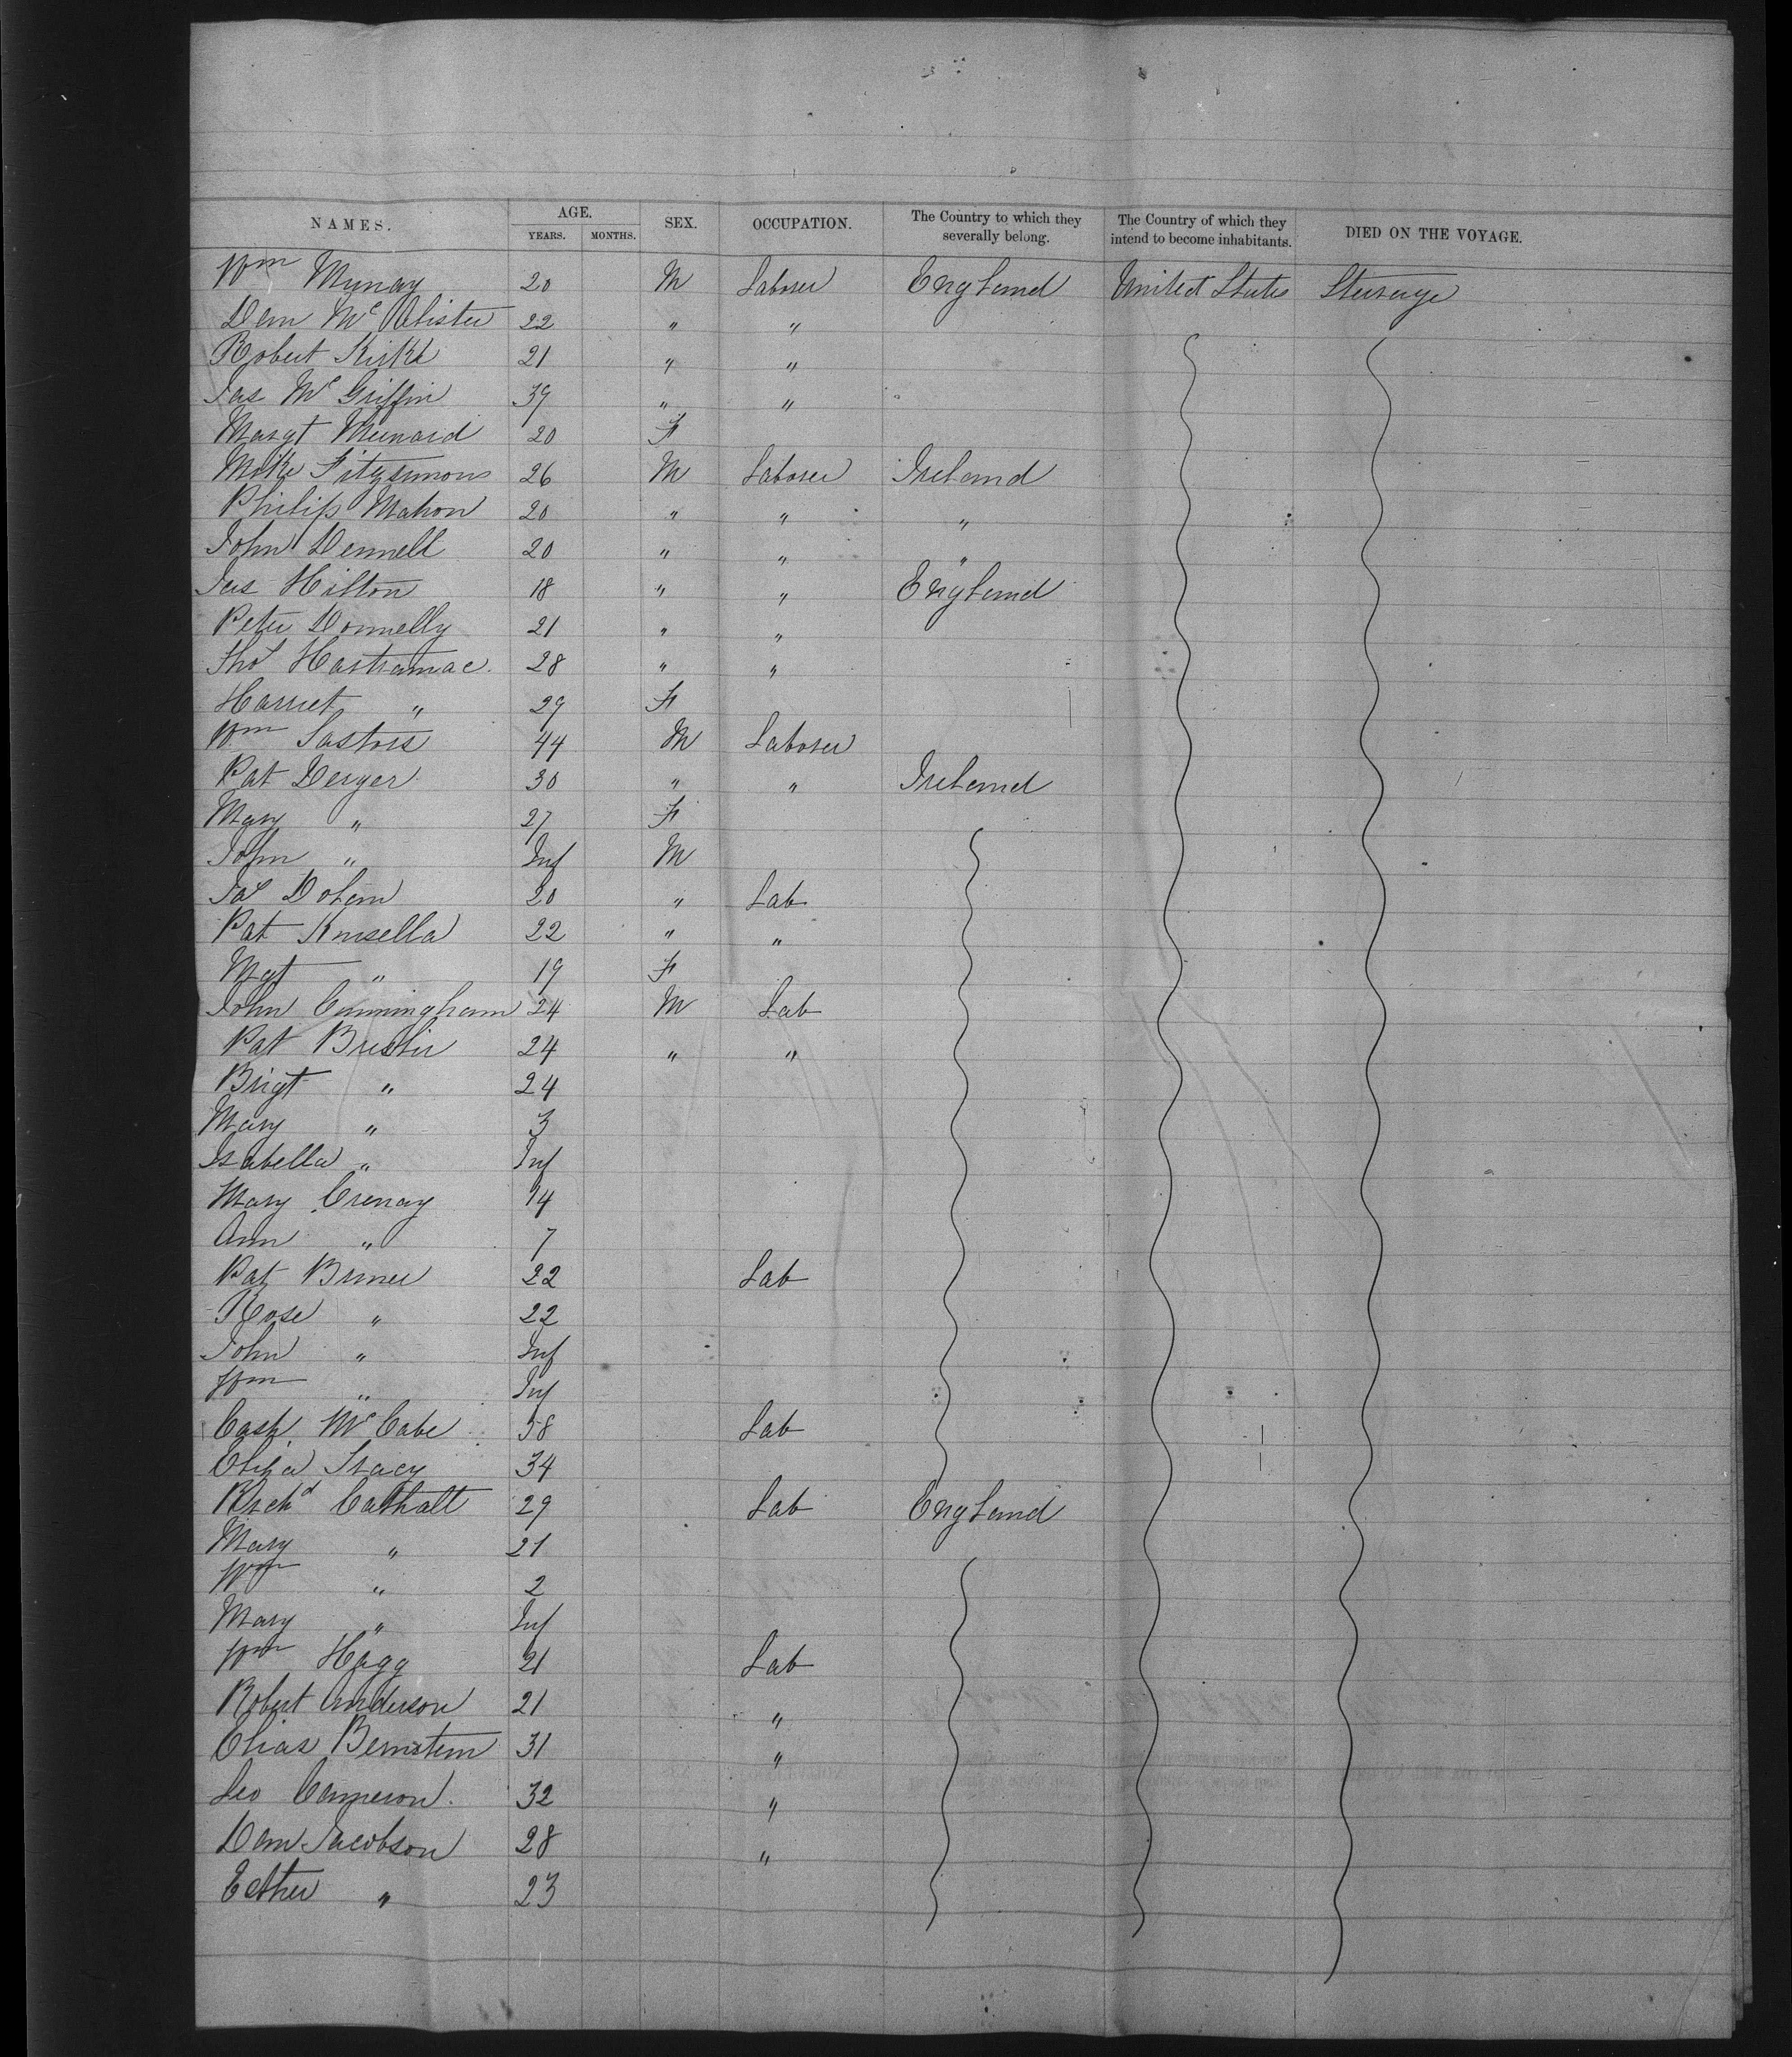 NAMES. AGE. YEARS. MONTHS. SEX. OCCUPATION. The Country to which they severally belong. The Country of which they intend to become inhabitants. DIED ON THE VOYAGE.
Wm Murray 20 M Laborer England United States Steerage
Dan McAlister 22 " "
Robert Kirk 21 " "
Jas McGriffin 39 " "
Margt 20 F
Mike Fitzsimons 26 M Laborer Ireland
Philip Mahon 20 " " "
John Dennell 20 " " "
Jas Hilton 18 " " England
Peter Donnelly 21 " "
Thos 28 " "
Harriet " 29 F
Wm 44 M Laborer
Pat Dwyer 30 " " Ireland
Mary " 27 F
John " Inf M
Jas Dolan 20 " Lab
Pat Kinsella 22 " "
Mgt " 19 F
John Cunningham 24 M Lab
Pat 24 " "
Brigt " 24
Mary " 3
Isabella " Inf
Mary 14
Ann " 7
Pat Bruner 22 Lab
Rose " 22
John " Inf
Wm " Inf
McCabe 58 Lab
Eliza Stacy 34
Richd Cathall 29 Lab England
Mary " 21
Wm " 2
Mary " Inf
Wm Hagg 21 Lab
Robert Anderson 21 "
Elias Bernstein 31 "
Geo Cameron. 32 "
Dan Jacobson 28 "
Esther " 23